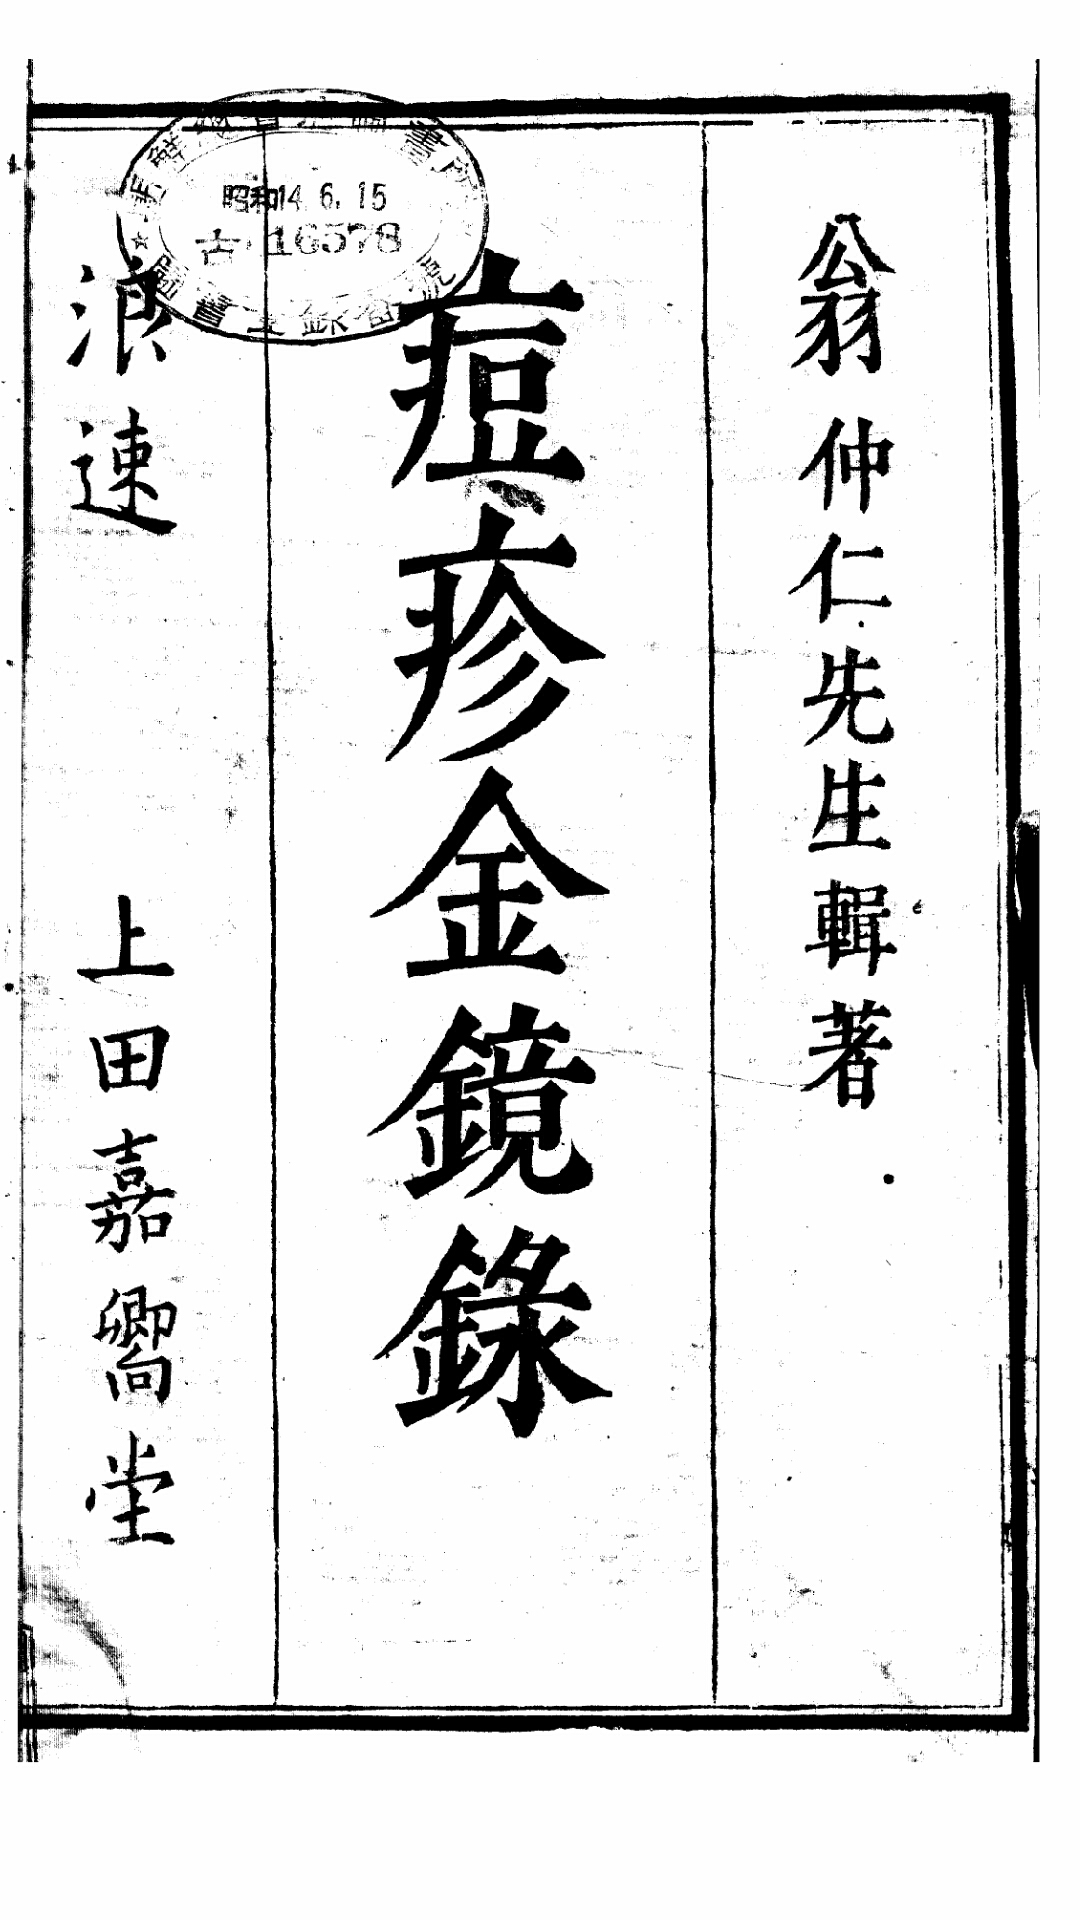 翁仲仁先生輯著
痘疹金鏡錄
浪速 上田嘉嚮堂
昭和14.6.15
古 16578